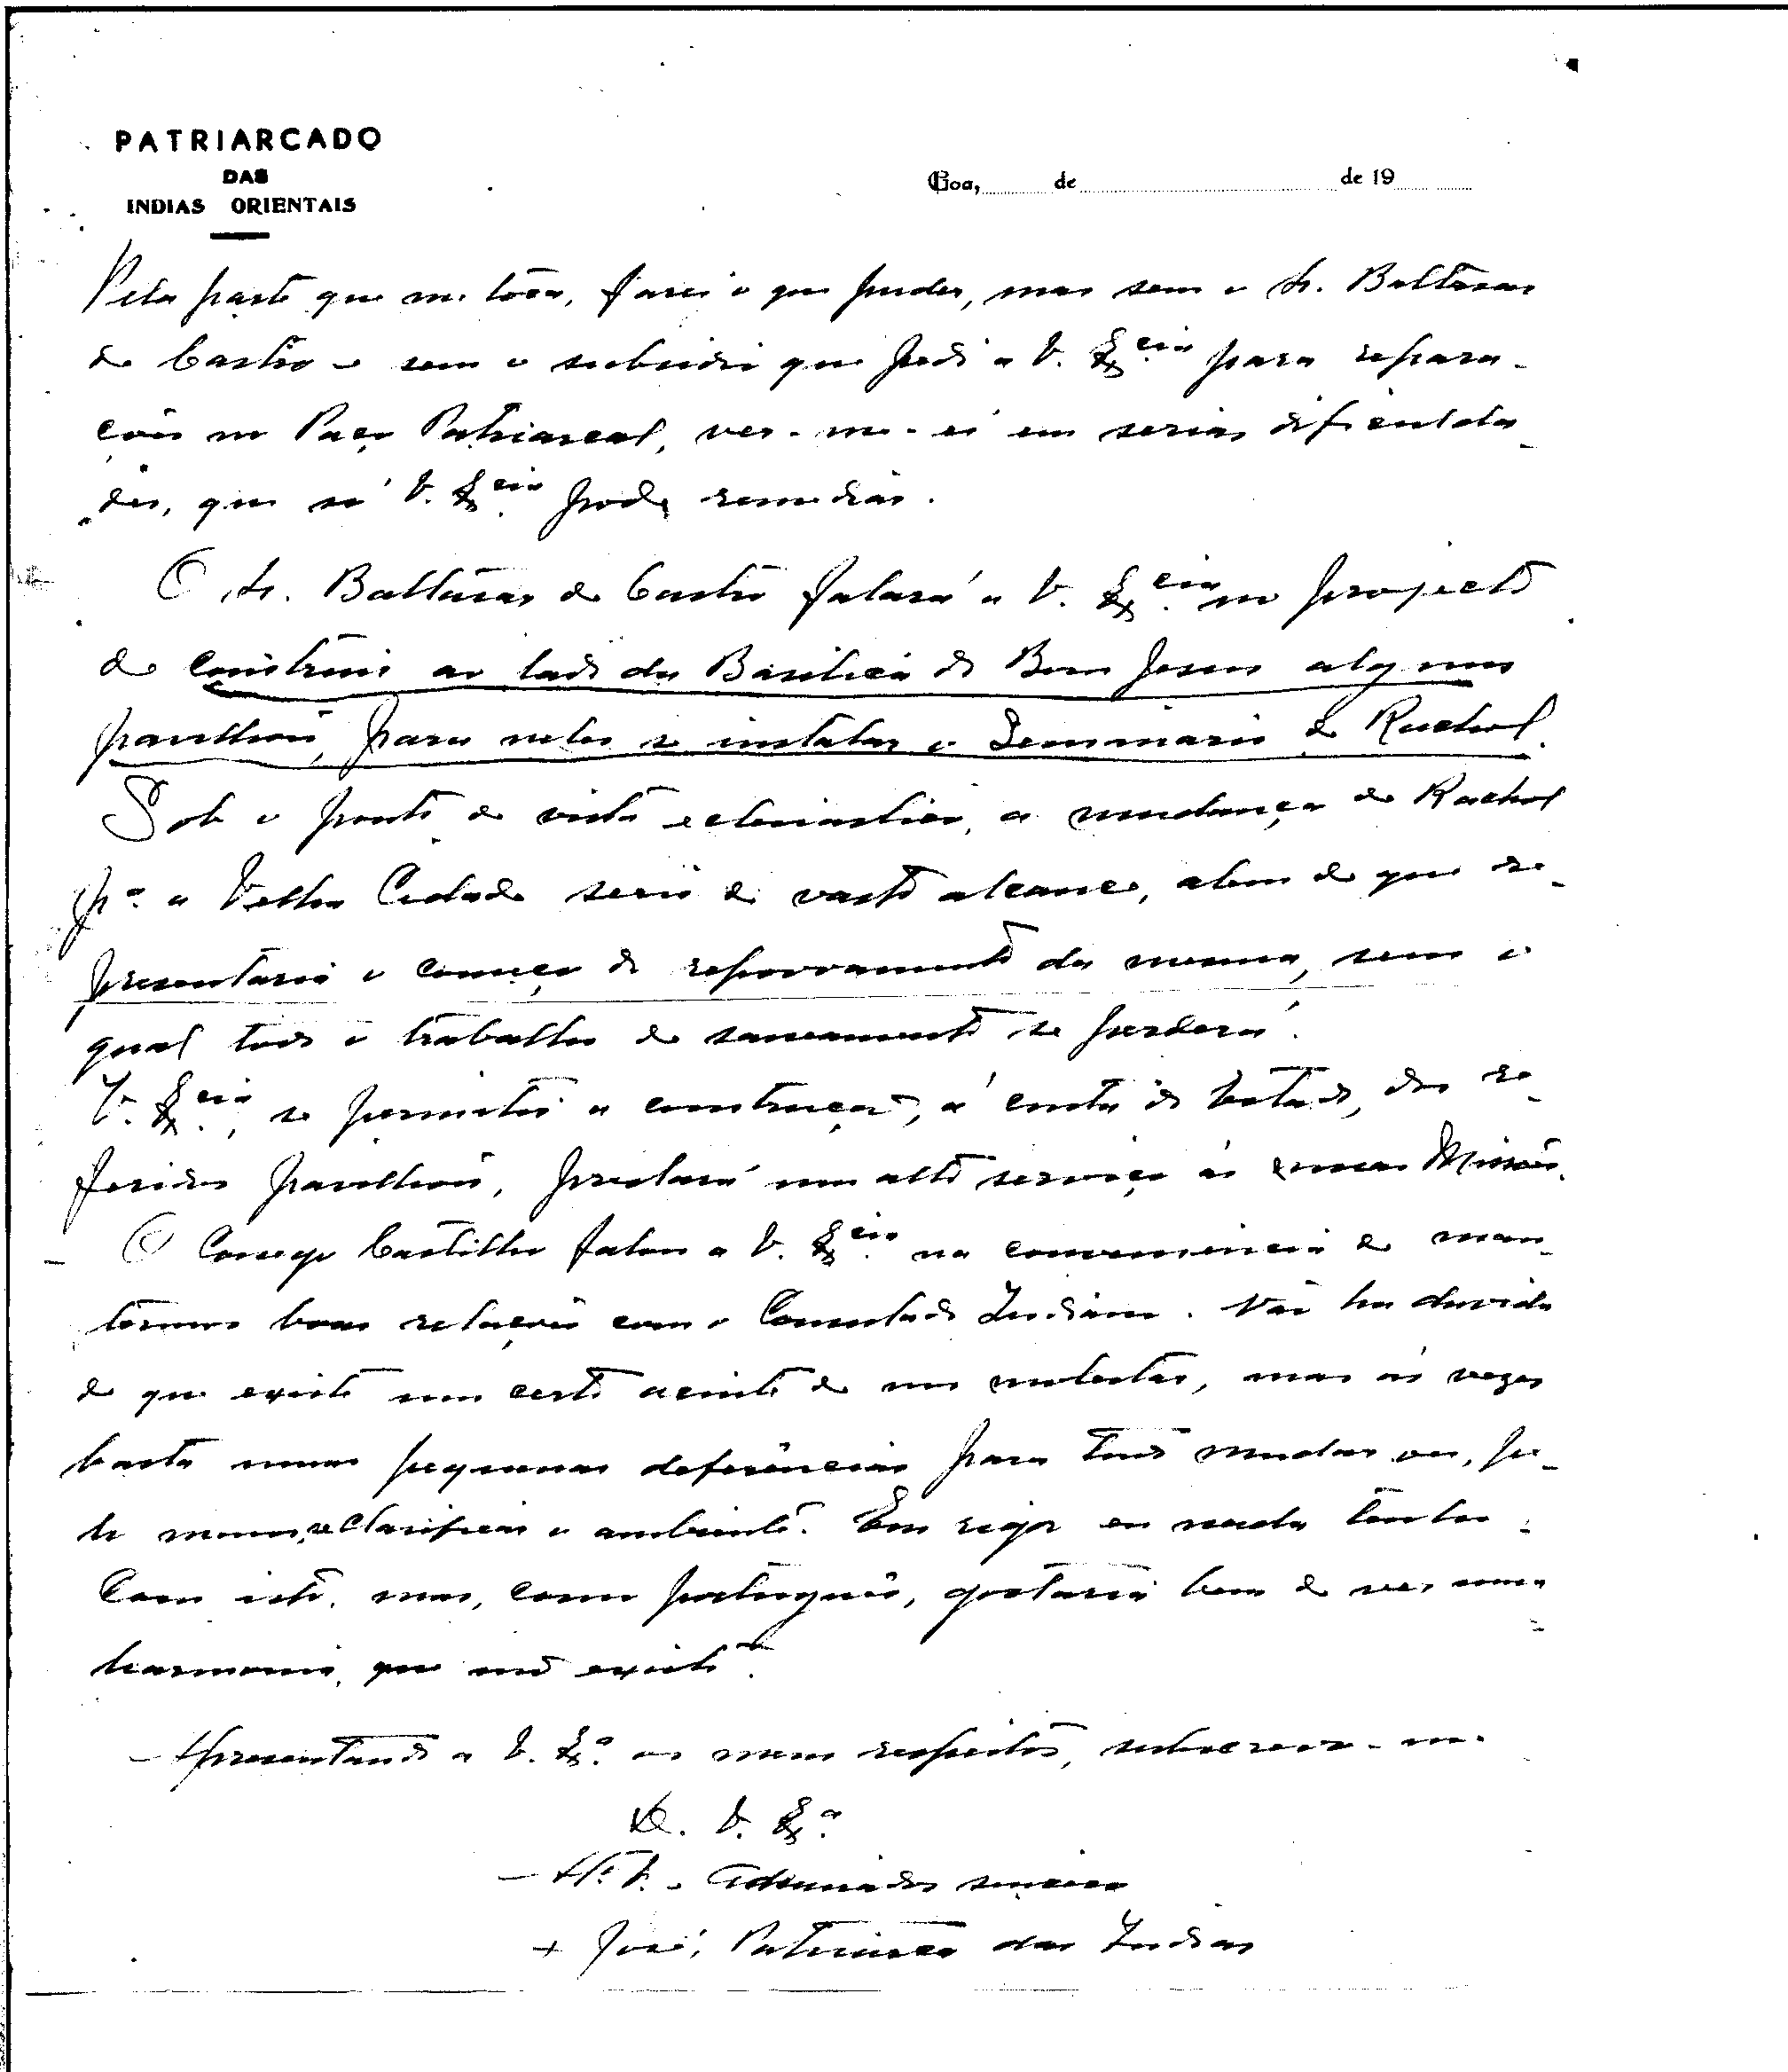 PATRIARCADO
DAS
INDIAS ORIENTAIS
Goa, de de 19
Pela parte que me toca, farei o que puder, mas sem o Sr. Baltasar
de Castro e sem o subsidio que pedi a V. Ex.cia para repara-
ções no Paço Patriarcal, ver-me-ei em serias dificulda-
des, que só V. Ex.cia pode remediar.
O Sr. Baltasar de Castro falará a V. Ex.cia no projecto
de construir ao lado da Basilica do Bom Jesus alguns
pavilhões, para neles se instalar o Seminario de Rachol.
Sob o ponto de vista eclesiastico, a mudança de Rachol
p.a a Velha Cidade seria de vasto alcance, alem de que re-
presentaria o começo do repovoamento da mesma, sem o
qual todo o trabalho de saneamento se perderá.
V. Ex.cia, se permitir a construção, á conta do Estado, dos re-
feridos pavilhões, prestará um alto serviço ás Missões.
O Conego Castilho falou a V. Ex.cia na conveniencia de man-
termos boas relações com o Consulado Indiano. Não ha duvida
de que existe um certo acinte de nos molestar, mas ás vezes
basta umas pequenas deferências para tudo mudar ou, pe-
lo menos, se clarificar o ambiente. Em rigor eu nada tenho
com isto, mas, como português, gostaria bem de ver uma
harmonia, que não existe.
Apresentando a V. Ex.a os meus respeitos, subscrevo-me
De V. Ex.a
At.o V. Admirador sincero
+ José, Patriarca das Indias